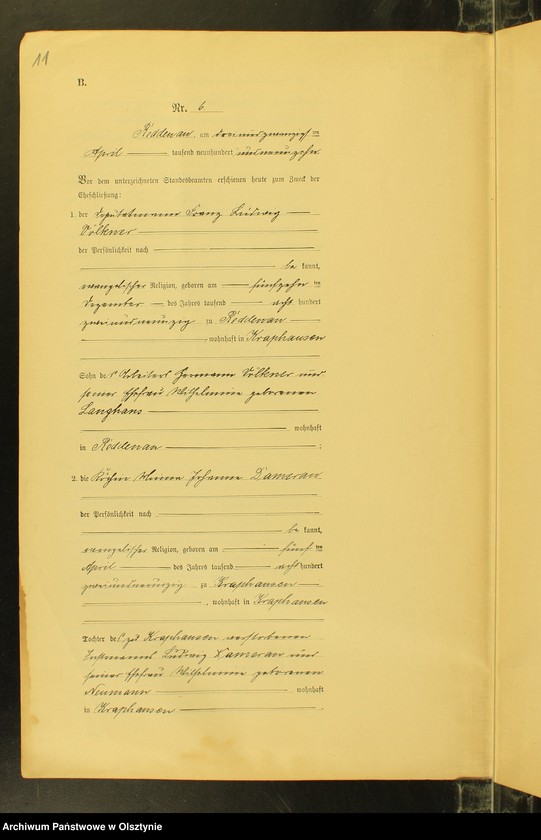 11
B.
Nr. 6
Reddenau, am dreiundzwanzigsten
April tausend neunhundert undneunzehn
Vor dem unterzeichneten Standesbeamten erschienen heute zum Zweck der
Eheschließung:
1. der Deputatmann Franz Ludwig
Völkner
der Persönlichkeit nach
be kannt,
evangelischer Religion, geboren am fünfzehnten
Dezember des Jahres tausend acht hundert
zweiundneunzig zu Reddenau
, wohnhaft in Kraphausen
Sohn des Arbeiters Hermann Völkner und
seiner Ehefrau Wilhelmine geborenen
Langhans
wohnhaft
in Reddenau ;
2. die Köchin Minna Johanna Dameran
der Persönlichkeit nach
be kannt,
evangelischer Religion, geboren am fünften
April des Jahres tausend acht hundert
zweiundneunzig zu Kraphausen
, wohnhaft in Kraphausen
Tochter des zu Kraphausen verstorbenen
Instmanns Ludwig Dameran und
seiner Ehefrau Wilhelmine geborenen
Neumann wohnhaft
in Kraphausen .
Archiwum Państwowe w Olsztynie